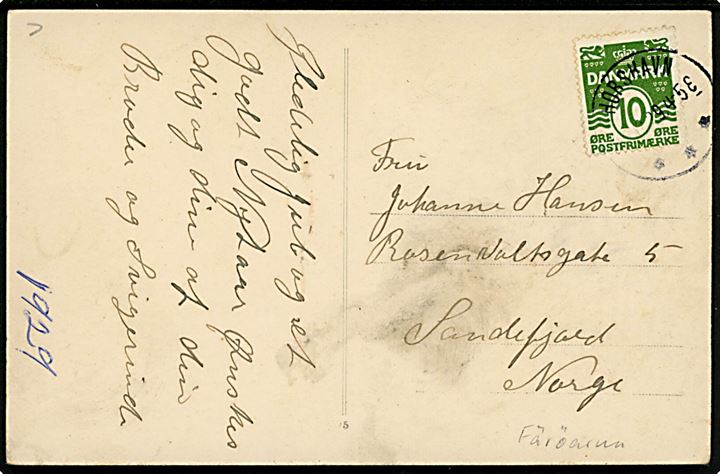 Glædelig Jul og et
godt Nytaar ønskes
dig og dine af din
Broder og Svigerinde
1929
DANMARK
10
ØRE ØRE
POSTFRIMÆRKE
THORSHAVN
Fru
Johanne Hansen
Rosenvoltsgate 5
Sandefjord
Norge
5